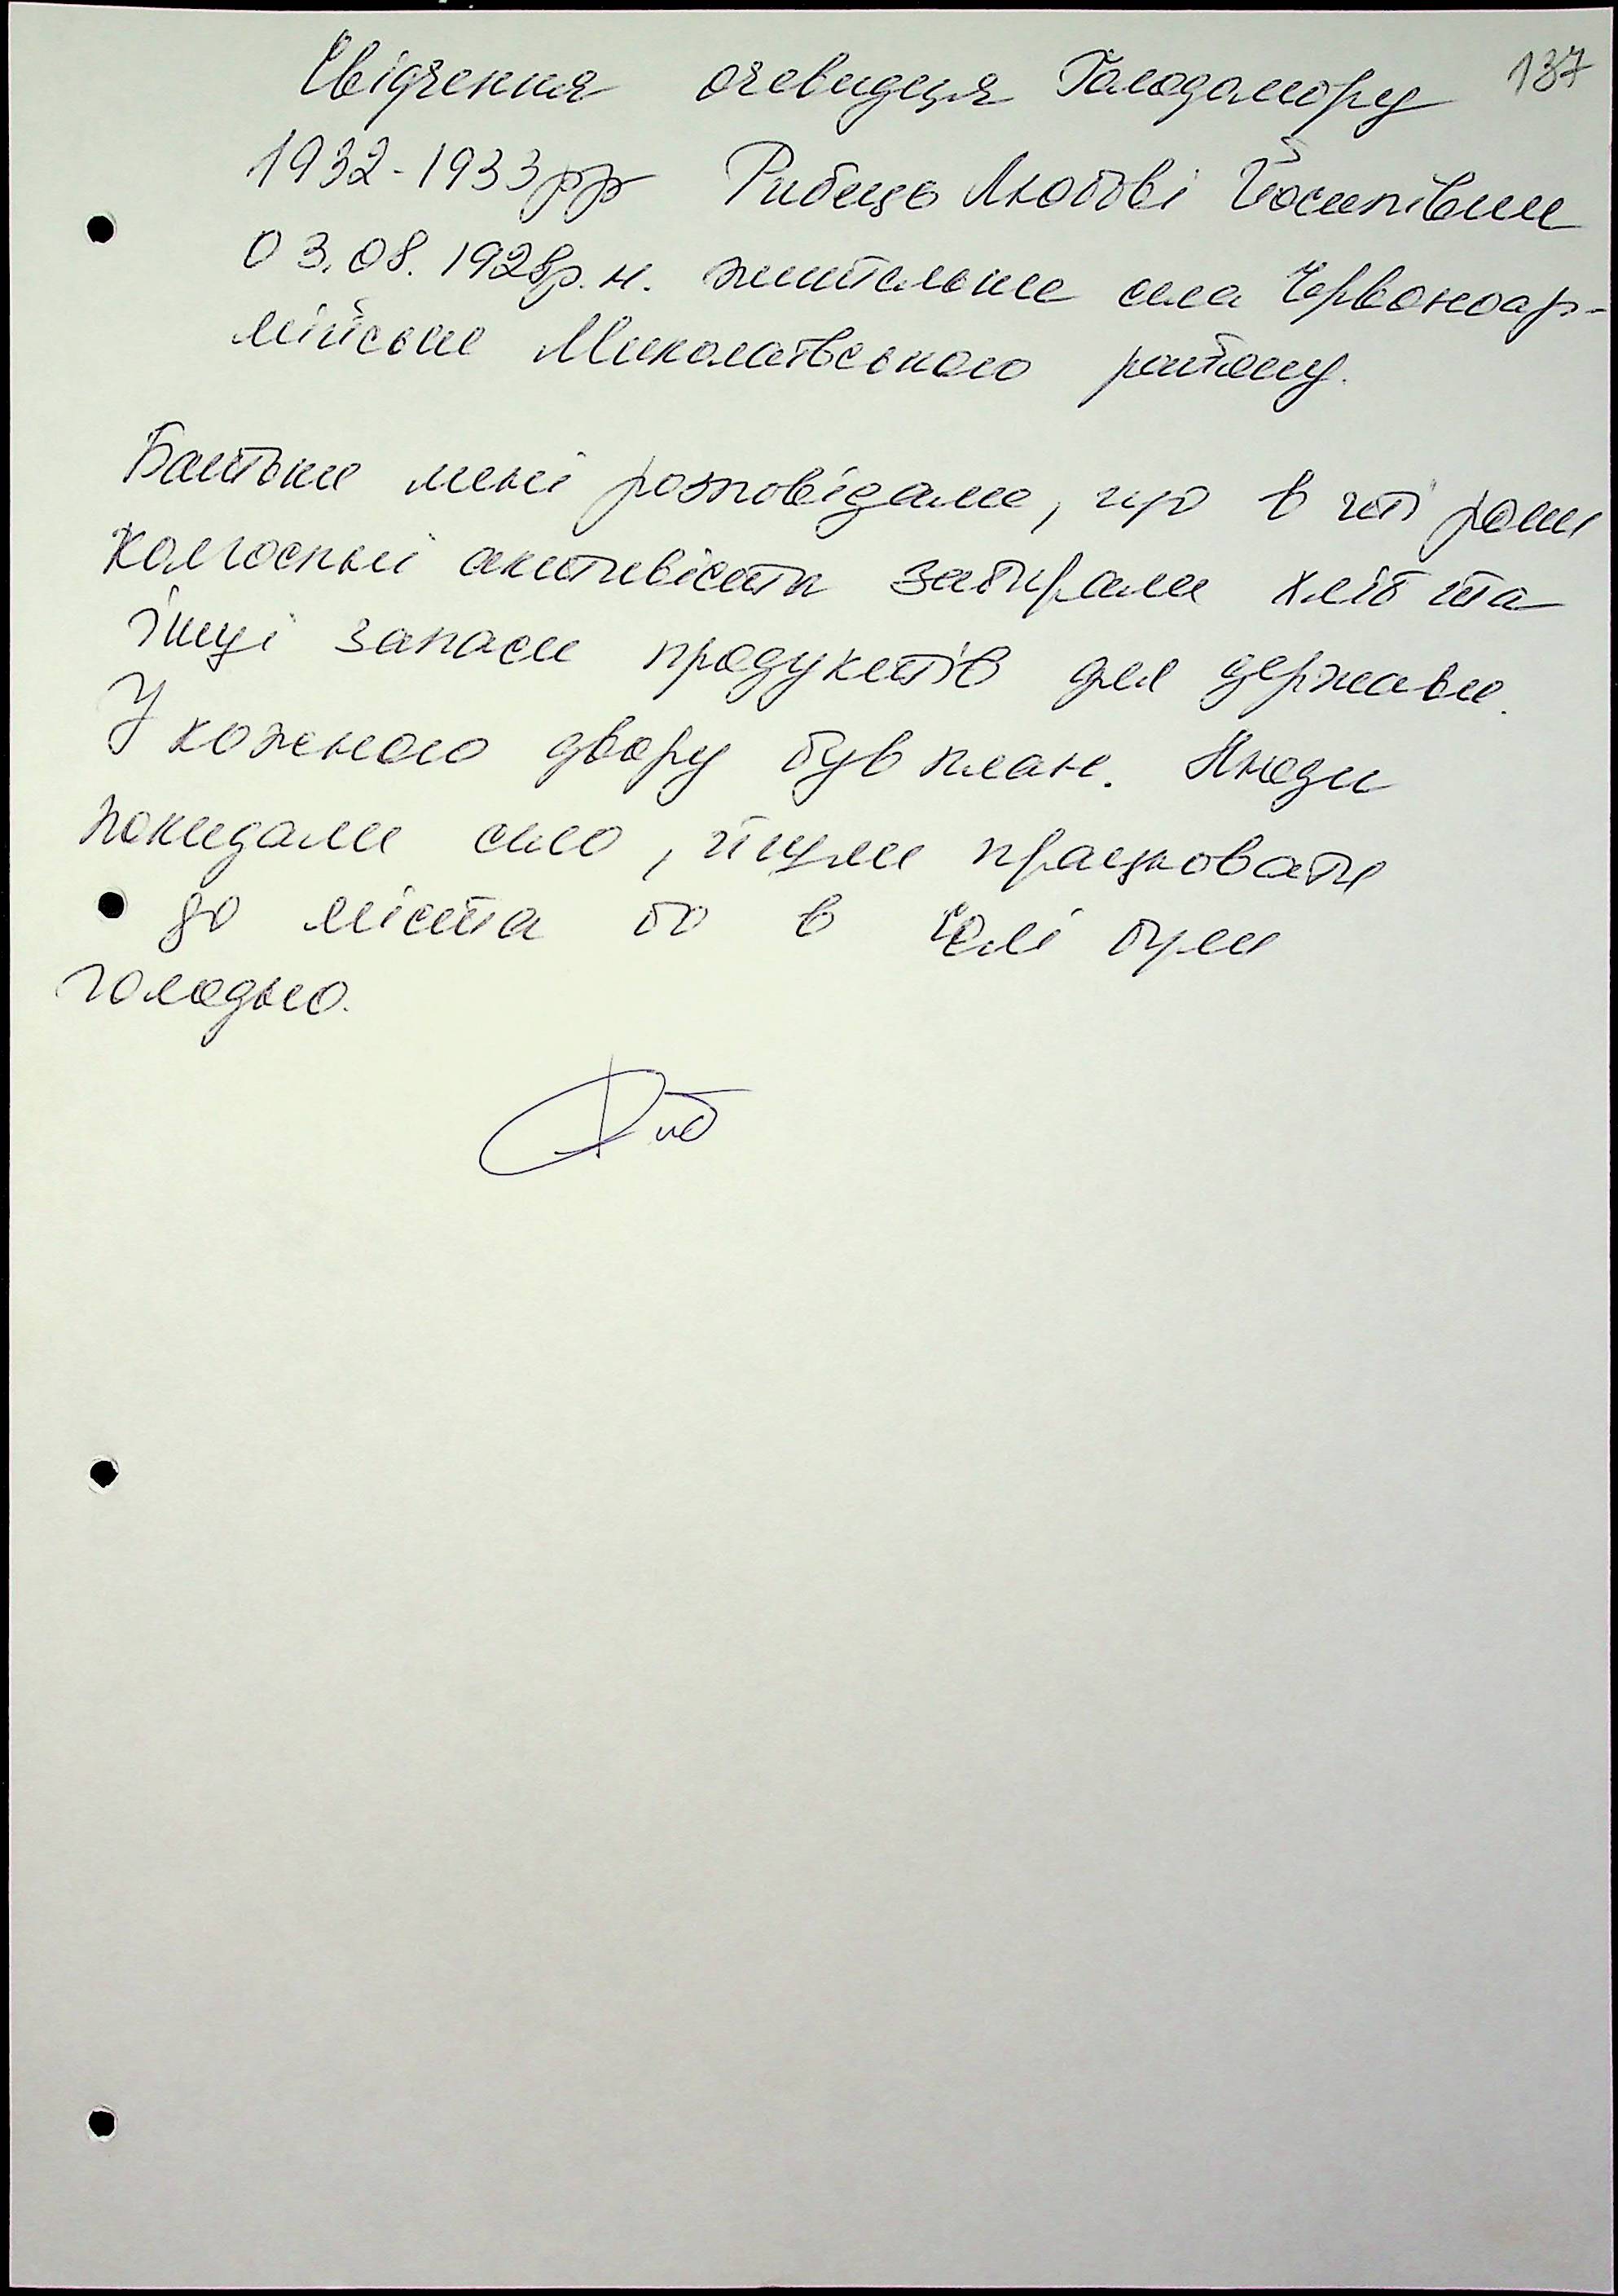 137
Свідчення очевидця Голодомору
1932-1933рр Рибець Любові Йосипівни
03.08.1928р.н. жительки села Червоноар-
мійське Миколаївського району.
Батьки мені розповідали, що в ті роки
колгоспні активісти забирали хліб та
інші запаси продуктів для держави.
У кожного двору був план. Люди
покидали село, йшли працювати
до міста бо в селі були
голодно.
Риб